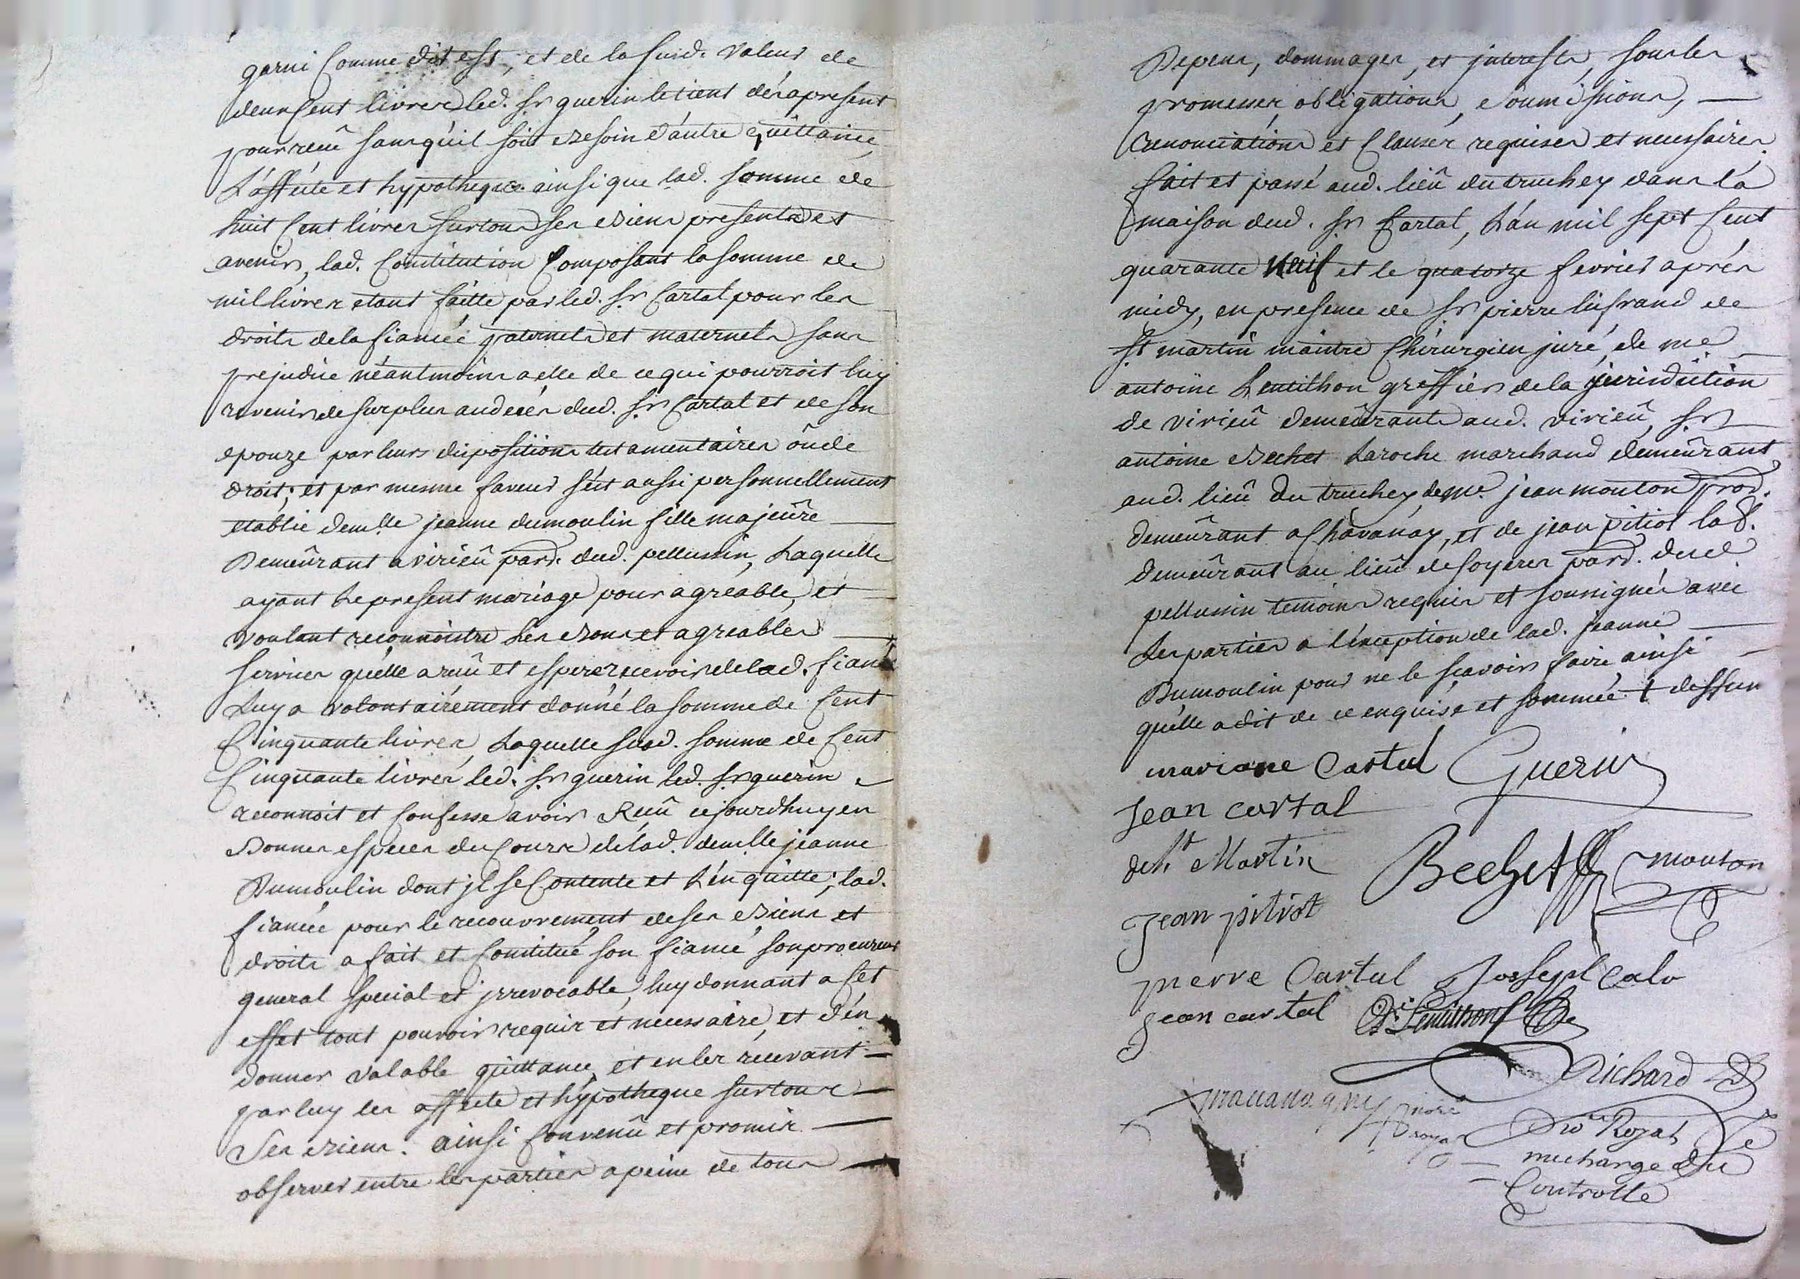 garni Comme dit est, et de la susd. valeur de
deux Cent livres led. Sr guerin le tient dés a present
pour reçu sans qu'il soit besoin d'autre quittance,
L'affecte et hypotheque ainsi que lad. somme de
huit Cent livres sur tous ses biens presents et
avenir, lad. Constitution Composant la somme de
mil livres etant faitte par led. Sr Cartal pour les
droits de la fiancée paternels et maternels sans
prejudice néantmoins a elle de ce qui pourroit luy
revenir de surplus au decés dud. Sr Cartal et de son
epouze par leurs dispositions testamentaires oû de
droit; et par mesme faveur s'est aussi personnellement
etablie demlle jeanne dumoulin fille majeûre
Demeûrant a virieû parr. dud. pellussin, Laquelle
ayant Le present mariage pour agréable, et
voulant reconnoistre Les bons et agreables
services qu'elle a reçû et espere recevoir de lad. fiancée
Luy a volontairement donné la somme de Cent
Cinquante livres, Laquelle susd. somme de Cent
Cinquante livres led. Sr guerin led. Sr guerin
reconnoit et Confesse avoir Reçû cejourdhuy en
bonnes especes du Cours de lad. demlle jeanne
Dumoulin dont jl se Contente et L'en quitte; lad.
fiancée pour le recouvrement de ses biens et
droits a fait et Constitué son fiancé son procureur
general special et jrrevocable, luy donnant a cet
effet tout pouvoir requis et necessaire, et d'en
donner valable quittance, et en les recevant
par luy les affecte et hypotheque sur tous
Ses biens. ainsi Convenû et promis
observer entre les parties a peine de tous
Depens, dommages, et jnterests, sous les
promesses, obligations, soumissions,
renonciations et Clauses requises et necessaires.
fait et passé aud. lieû du truchey dans la
maison dud. Sr Cartal, L'an mil sept Cent
quarante Neuf et le quatorze fevrier aprés
midy, en presence de Sr pierre lisfrand de
St martin maitre Chirurgien juré, de me
antoine Lentilhon greffier de la jurisdiction
de virieû demeûrant aud. virieû, Sr
antoine Bechet Laroche marchand demeûrant
aud. lieû du truchey, de Me. jean mouton prod.
demeûrant a Chavanay, et de jean pitiot lab.
demeûrant au lieû de soyeres parr. dud.
pellussin temoins requis et soussignés avec
Les parties a l'exception de lad. jeanne
Dumoulin pour ne le sçavoir faire ainsi
qu'elle a dit de ce enquise et sommée dessus
mariane Cartal Guerin
Jean cartal
de St Martin Bechet mouton
jean pitiot
pierre Cartal Josseph Calo
jean cartal Lentilhon
Richard
Royal
me charge du
Controlle